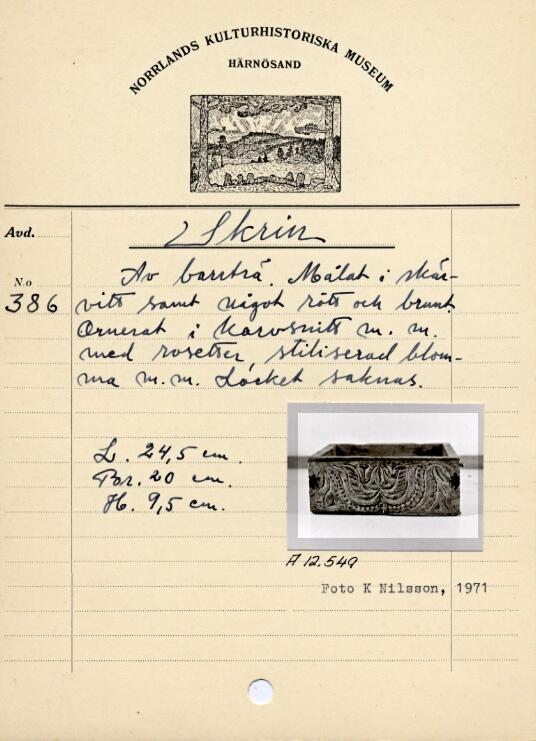 NORRLANDS KULTURHISTORISKA MUSEUM
HÄRNÖSAND
Avd.
Skrin
No
386
Av barrträ. Målat i skär-
vitt samt något rött och brunt.
Ornerat i karvsnitt m. m.
med rosetter, stiliserad blom-
ma m.m. Locket saknas.
L. 24,5 cm.
Br. 20 cm.
H. 9,5 cm.
A 12.549
Foto K Nilsson, 1971